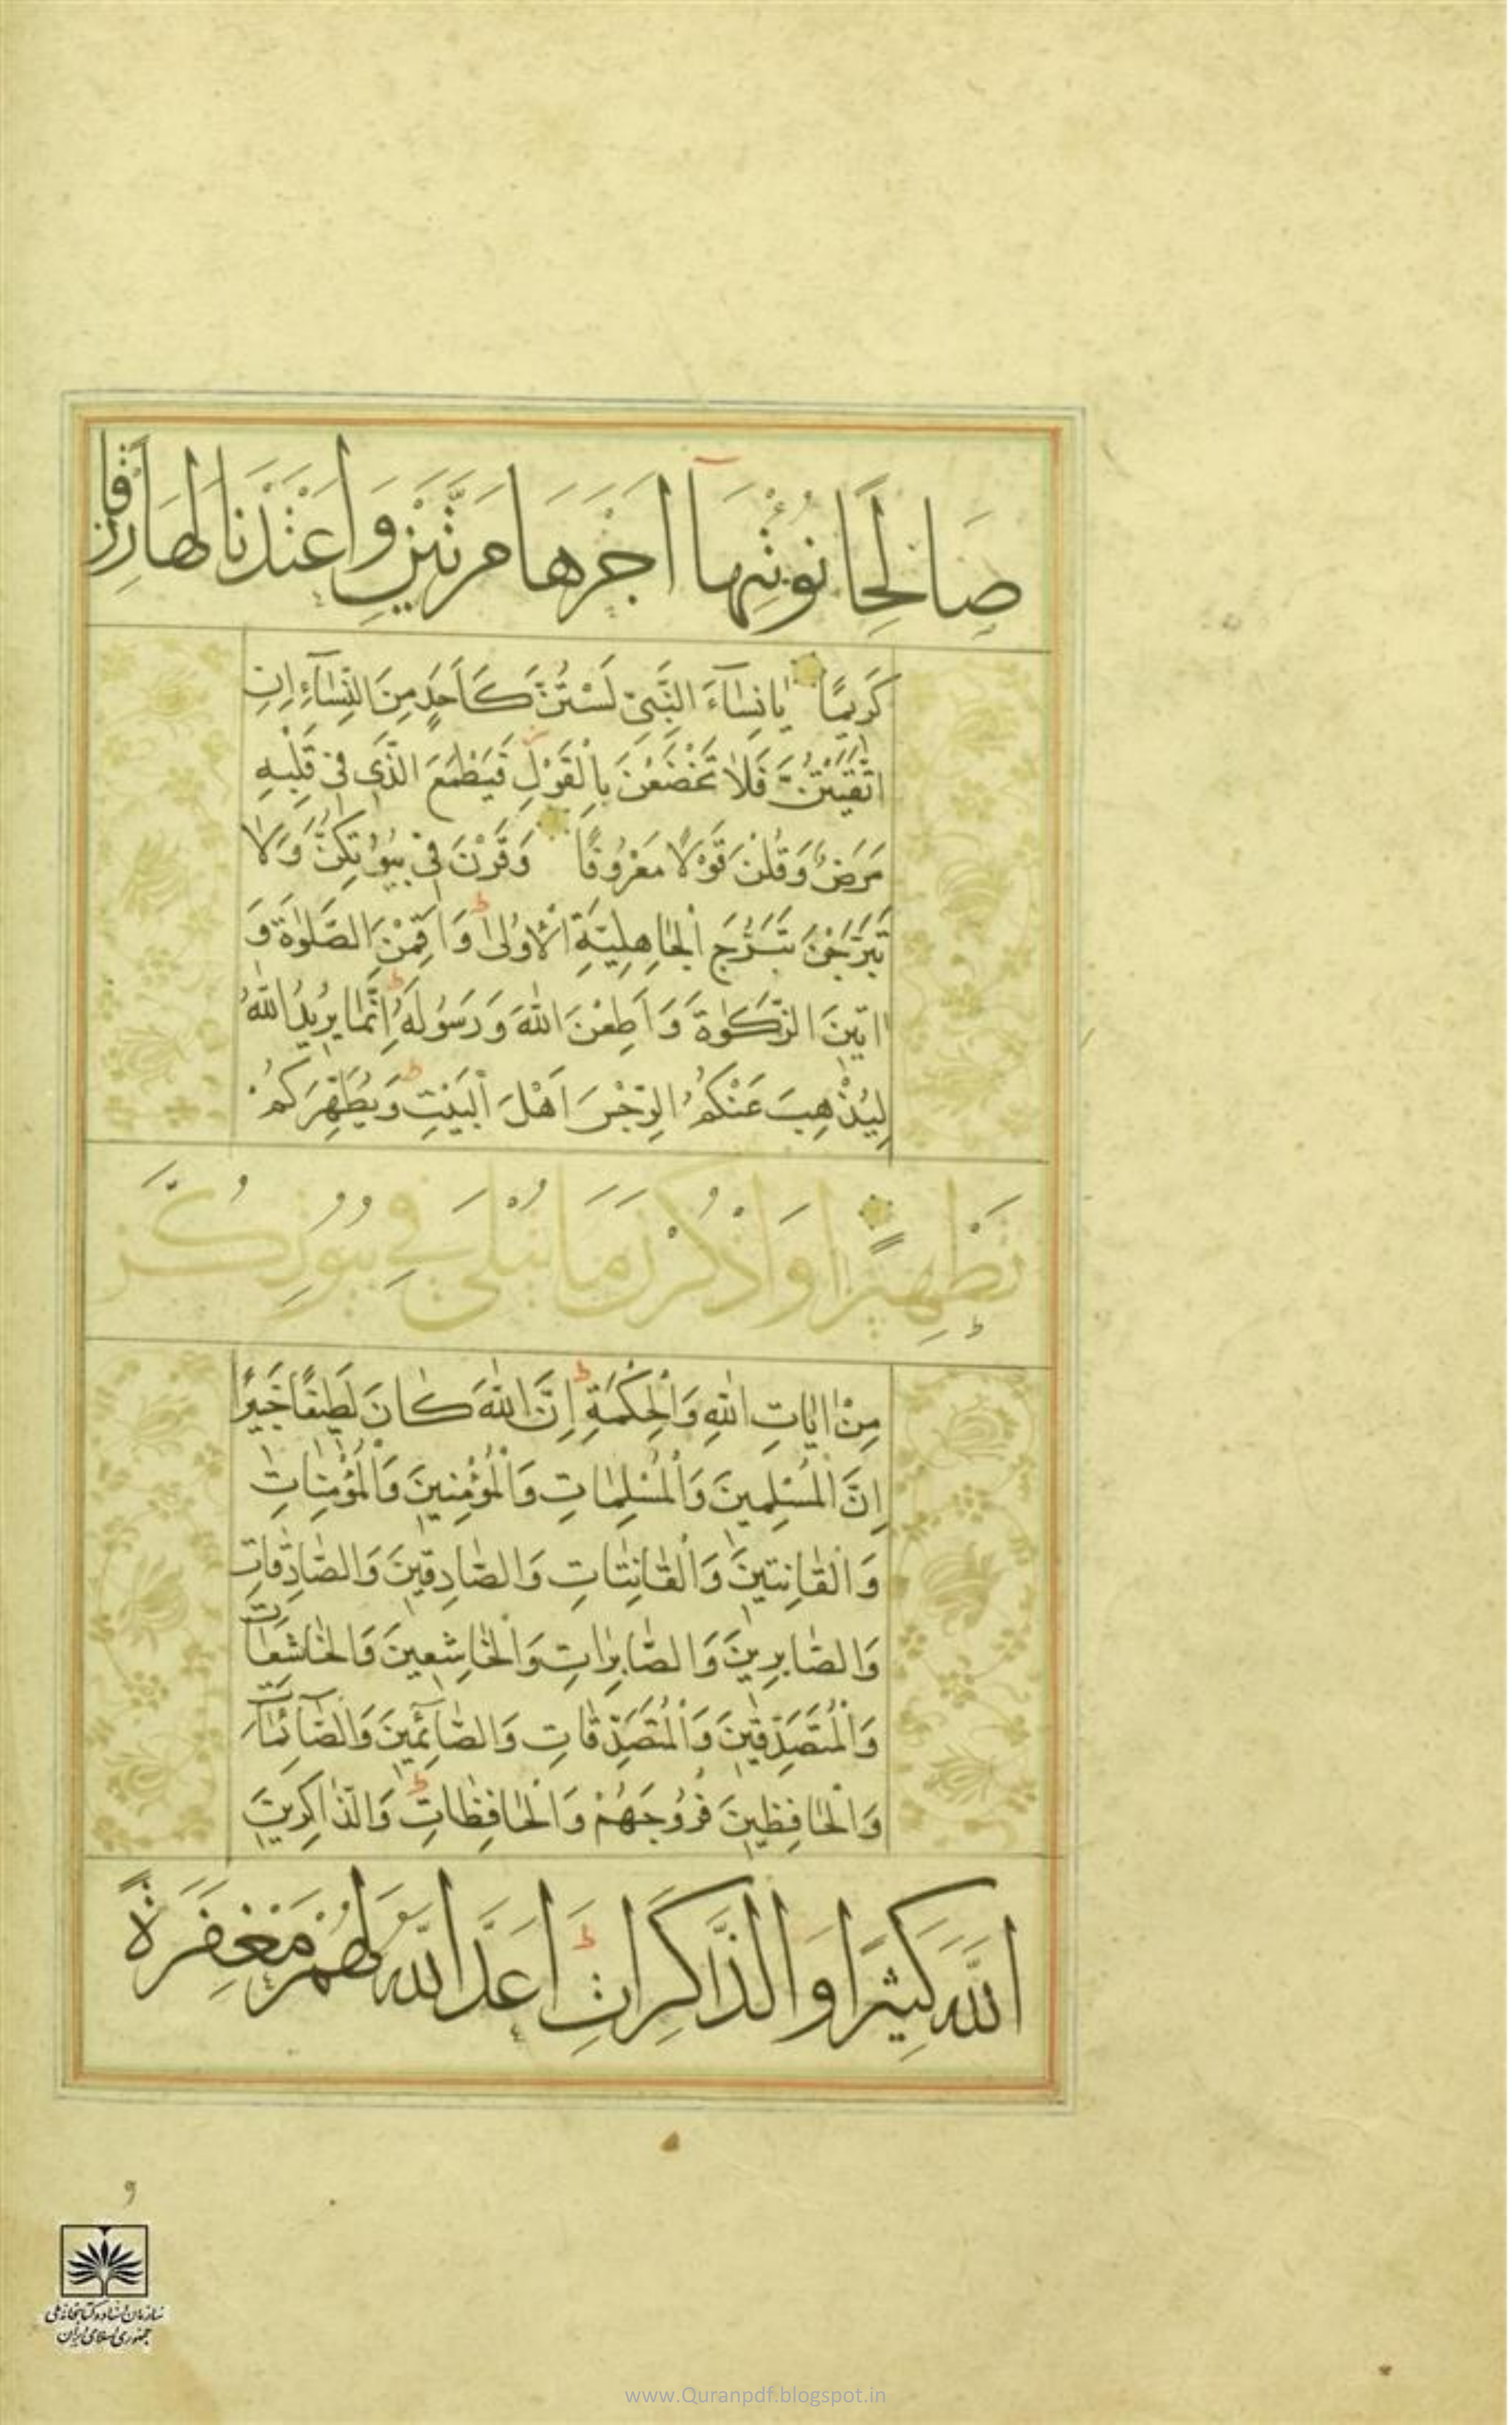 صَالِحًا نُؤْتِهَآ اَجْرَهَا مَرَّتَيْنِ وَاَعْتَدْنَا لَهَا رِزْقًا
كَرِيمًا يَانِسَآءَ النَّبِىِّ لَسْتُنَّ كَاَحَدٍ مِنَ النِّسَآءِ اِنِ
اتَّقَيْتُنَّ فَلَا تَخْضَعْنَ بِالْقَوْلِ فَيَطْمَعَ الَّذِى فِى قَلْبِهِ
مَرَضٌ وَقُلْنَ قَوْلًا مَعْرُوفًا وَقَرْنَ فِى بُيُوتِكُنَّ وَلَا
تَبَرَّجْنَ تَبَرُّجَ الْجَاهِلِيَّةِ الْاُولٰى وَاَقِمْنَ الصَّلٰوةَ وَ
اتِينَ الزَّكٰوةَ وَاَطِعْنَ اللّٰهَ وَرَسُولَهُ اِنَّمَا يُرِيدُ اللّٰهُ
لِيُذْهِبَ عَنْكُمُ الرِّجْسَ اَهْلَ الْبَيْتِ وَيُطَهِّرَكُمْ
تَطْهِيرًا وَاذْكُرْنَ مَا يُتْلٰى فِى بُيُوتِكُنَّ
مِنْ اٰيَاتِ اللّٰهِ وَالْحِكْمَةِ اِنَّ اللّٰهَ كَانَ لَطِيفًا خَبِيرًا
اِنَّ الْمُسْلِمِينَ وَالْمُسْلِمَاتِ وَالْمُؤْمِنِينَ وَالْمُؤْمِنَاتِ
وَالْقَانِتِينَ وَالْقَانِتَاتِ وَالصَّادِقِينَ وَالصَّادِقَاتِ
وَالصَّابِرِينَ وَالصَّابِرَاتِ وَالْخَاشِعِينَ وَالْخَاشِعَاتِ
وَالْمُتَصَدِّقِينَ وَالْمُتَصَدِّقَاتِ وَالصَّآئِمِينَ وَالصَّآئِمَاتِ
وَالْحَافِظِينَ فُرُوجَهُمْ وَالْحَافِظَاتِ وَالذَّاكِرِينَ
اللّٰهَ كَثِيرًا وَالذَّاكِرَاتِ اَعَدَّ اللّٰهُ لَهُمْ مَغْفِرَةً
سازمان اسناد و کتابخانه ملی
جمهوری اسلامی ایران
www.Quranpdf.blogspot.in